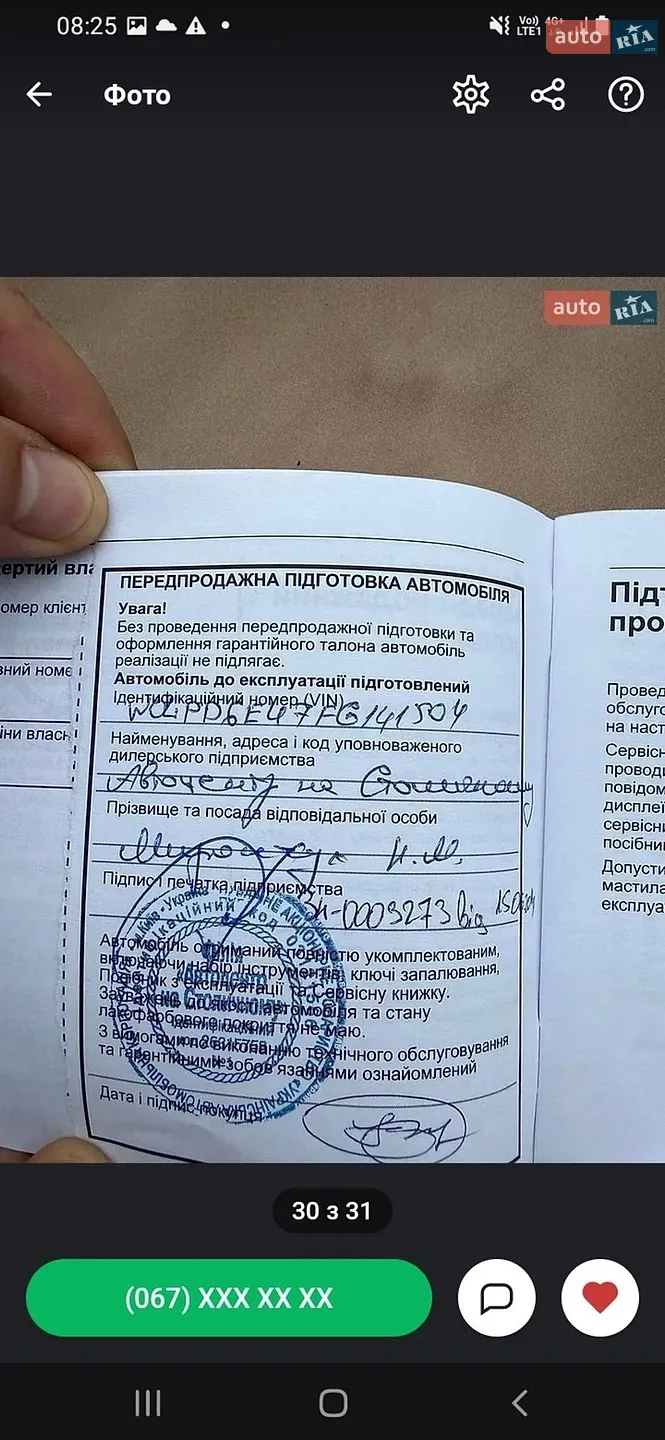 08:25
Vo)) 4G+
LTE1
auto RIA
.com
Фото
auto RIA
.com
ертий вла
омер клієнт
вний номе
іни власн
ПЕРЕДПРОДАЖНА ПІДГОТОВКА АВТОМОБІЛЯ
Увага!
Без проведення передпродажної підготовки та
оформлення гарантійного талона автомобіль
реалізації не підлягає.
Автомобіль до експлуатації підготовлений
Ідентифікаційний номер (VIN)
W0LPD6E47FG141504
Найменування, адреса і код уповноваженого
дилерського підприємства
Автоцентр на Столичному
Прізвище та посада відповідальної особи
Н.М.
Підпис і печатка підприємства
ЗН-0003273 від
Автомобіль отриманий повністю укомплектованим,
включаючи набір інструментів, ключі запалювання,
Посібник з експлуатації та Сервісну книжку.
Зауважень до якості автомобіля та стану
лакофарбового покриття не маю.
З вимогами по виконанню технічного обслуговування
та гарантійними зобов'язаннями ознайомлений
Дата і підпис покупця
Київ Україна
«Автоцентр
на Столичному»
Під
про
Провед
обслуг
на наст
Сервісн
проводи
повідом
дисплеї
сервісни
посібни
Допусти
мастила
експлуа
30 з 31
(067) XXX XX XX